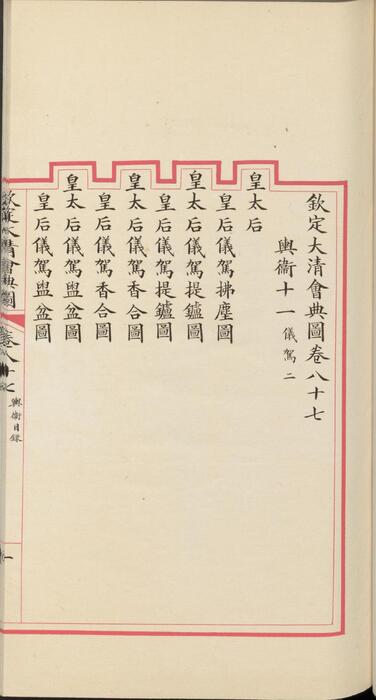 欽定大清會典圖卷八十七
輿衞十一 儀駕二
皇太后
皇后儀駕拂塵圖
皇太后儀駕提鑪圖
皇后儀駕提鑪圖
皇太后儀駕香合圖
皇后儀駕香合圖
皇太后儀駕盥盆圖
皇后儀駕盥盆圖
欽定大清會典圖 卷八十七 輿衞目錄 一